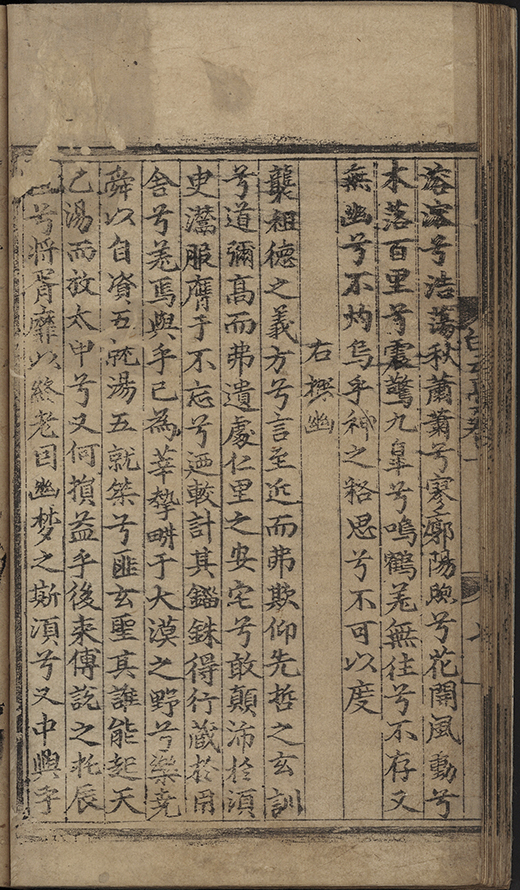 溶溶兮浩蕩秋蕭蕭兮寥廓陽煦兮花開風動兮
木落百里兮震驚九皐兮鳴鶴羗無往兮不存又
無幽兮不灼烏乎神之格思兮不可以度
右撰幽
襲祖德之義方兮言至近而弗欺仰先哲之玄訓
兮道彌高而弗遺處仁里之安宅兮敢顛沛於須
史灋服膺于不忘兮迺較計其錙銖得行藏於用
舍兮羗焉與乎已為莘摯畊于大漠之野兮樂堯
舜以自資五就湯五就桀兮匪玄聖其誰能起天
乙湯而放太甲兮又何損益乎後来傅說之托辰
兮將胥靡以終老因幽梦之斯須兮又中興乎